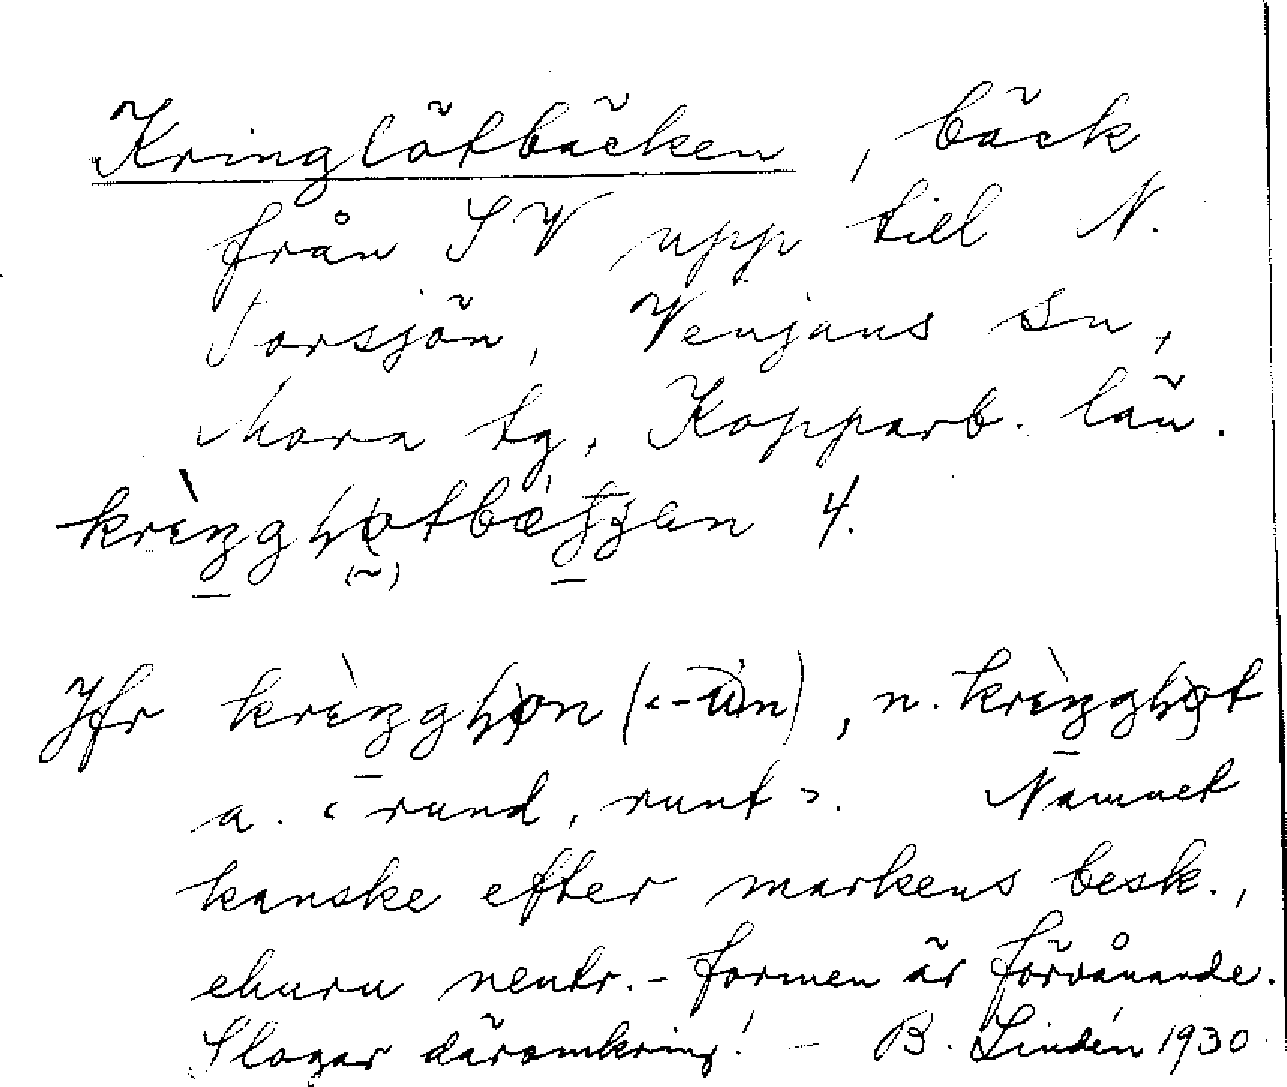 Kringlötbäcken, bäck
från SV upp till N.
Torsjön, Venjans sn,
Mora tg, Kopparb. län.
4.
Jfr , n.
a. "rund, runt". Namnet
kanske efter markens besk.,
ehuru neutr.-formen är förvånande.
Slogar däromkring! - B. Lindén 1930